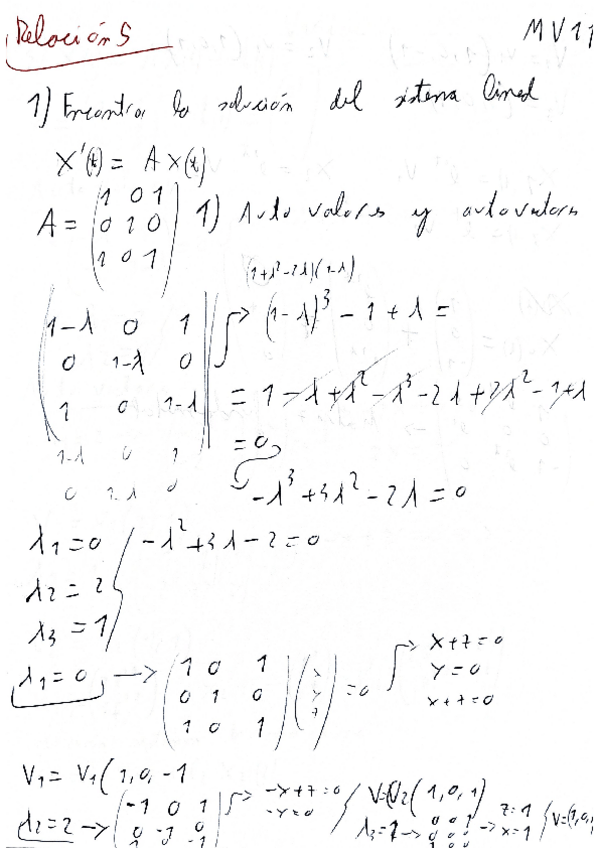 Relación 5
MV11
1) Encontrar la solución del sistema lineal
X'(t) = A X(t)
A = (1 0 1
0 1 0
1 0 1) 1) Autovalores y autovectores
(1+λ²-2λ)(1-λ)
|1-λ 0 1
0 1-λ 0
1 0 1-λ|
1-λ 0 1
0 1-λ 0
→ (1-λ)³ - 1 + λ =
= 1 - λ + λ² - λ³ - 2λ + 2λ² - 1 + λ
= 0
-λ³ + 3λ² - 2λ = 0
λ1 = 0 / -λ² + 3λ - 2 = 0
λ2 = 2
λ3 = 1
λ1 = 0 → (1 0 1
0 1 0
1 0 1) (x
y
z) = 0
→ x + z = 0
y = 0
x + z = 0
V1 = V1(1, 0, -1
λ2 = 2 → (-1 0 1
0 -1 0
1 0 -1
→ -x + z = 0
-y = 0
/ V=V2(1, 0, 1)
λ3 = 1 → 0 0 1
0 0 0
1 0 0